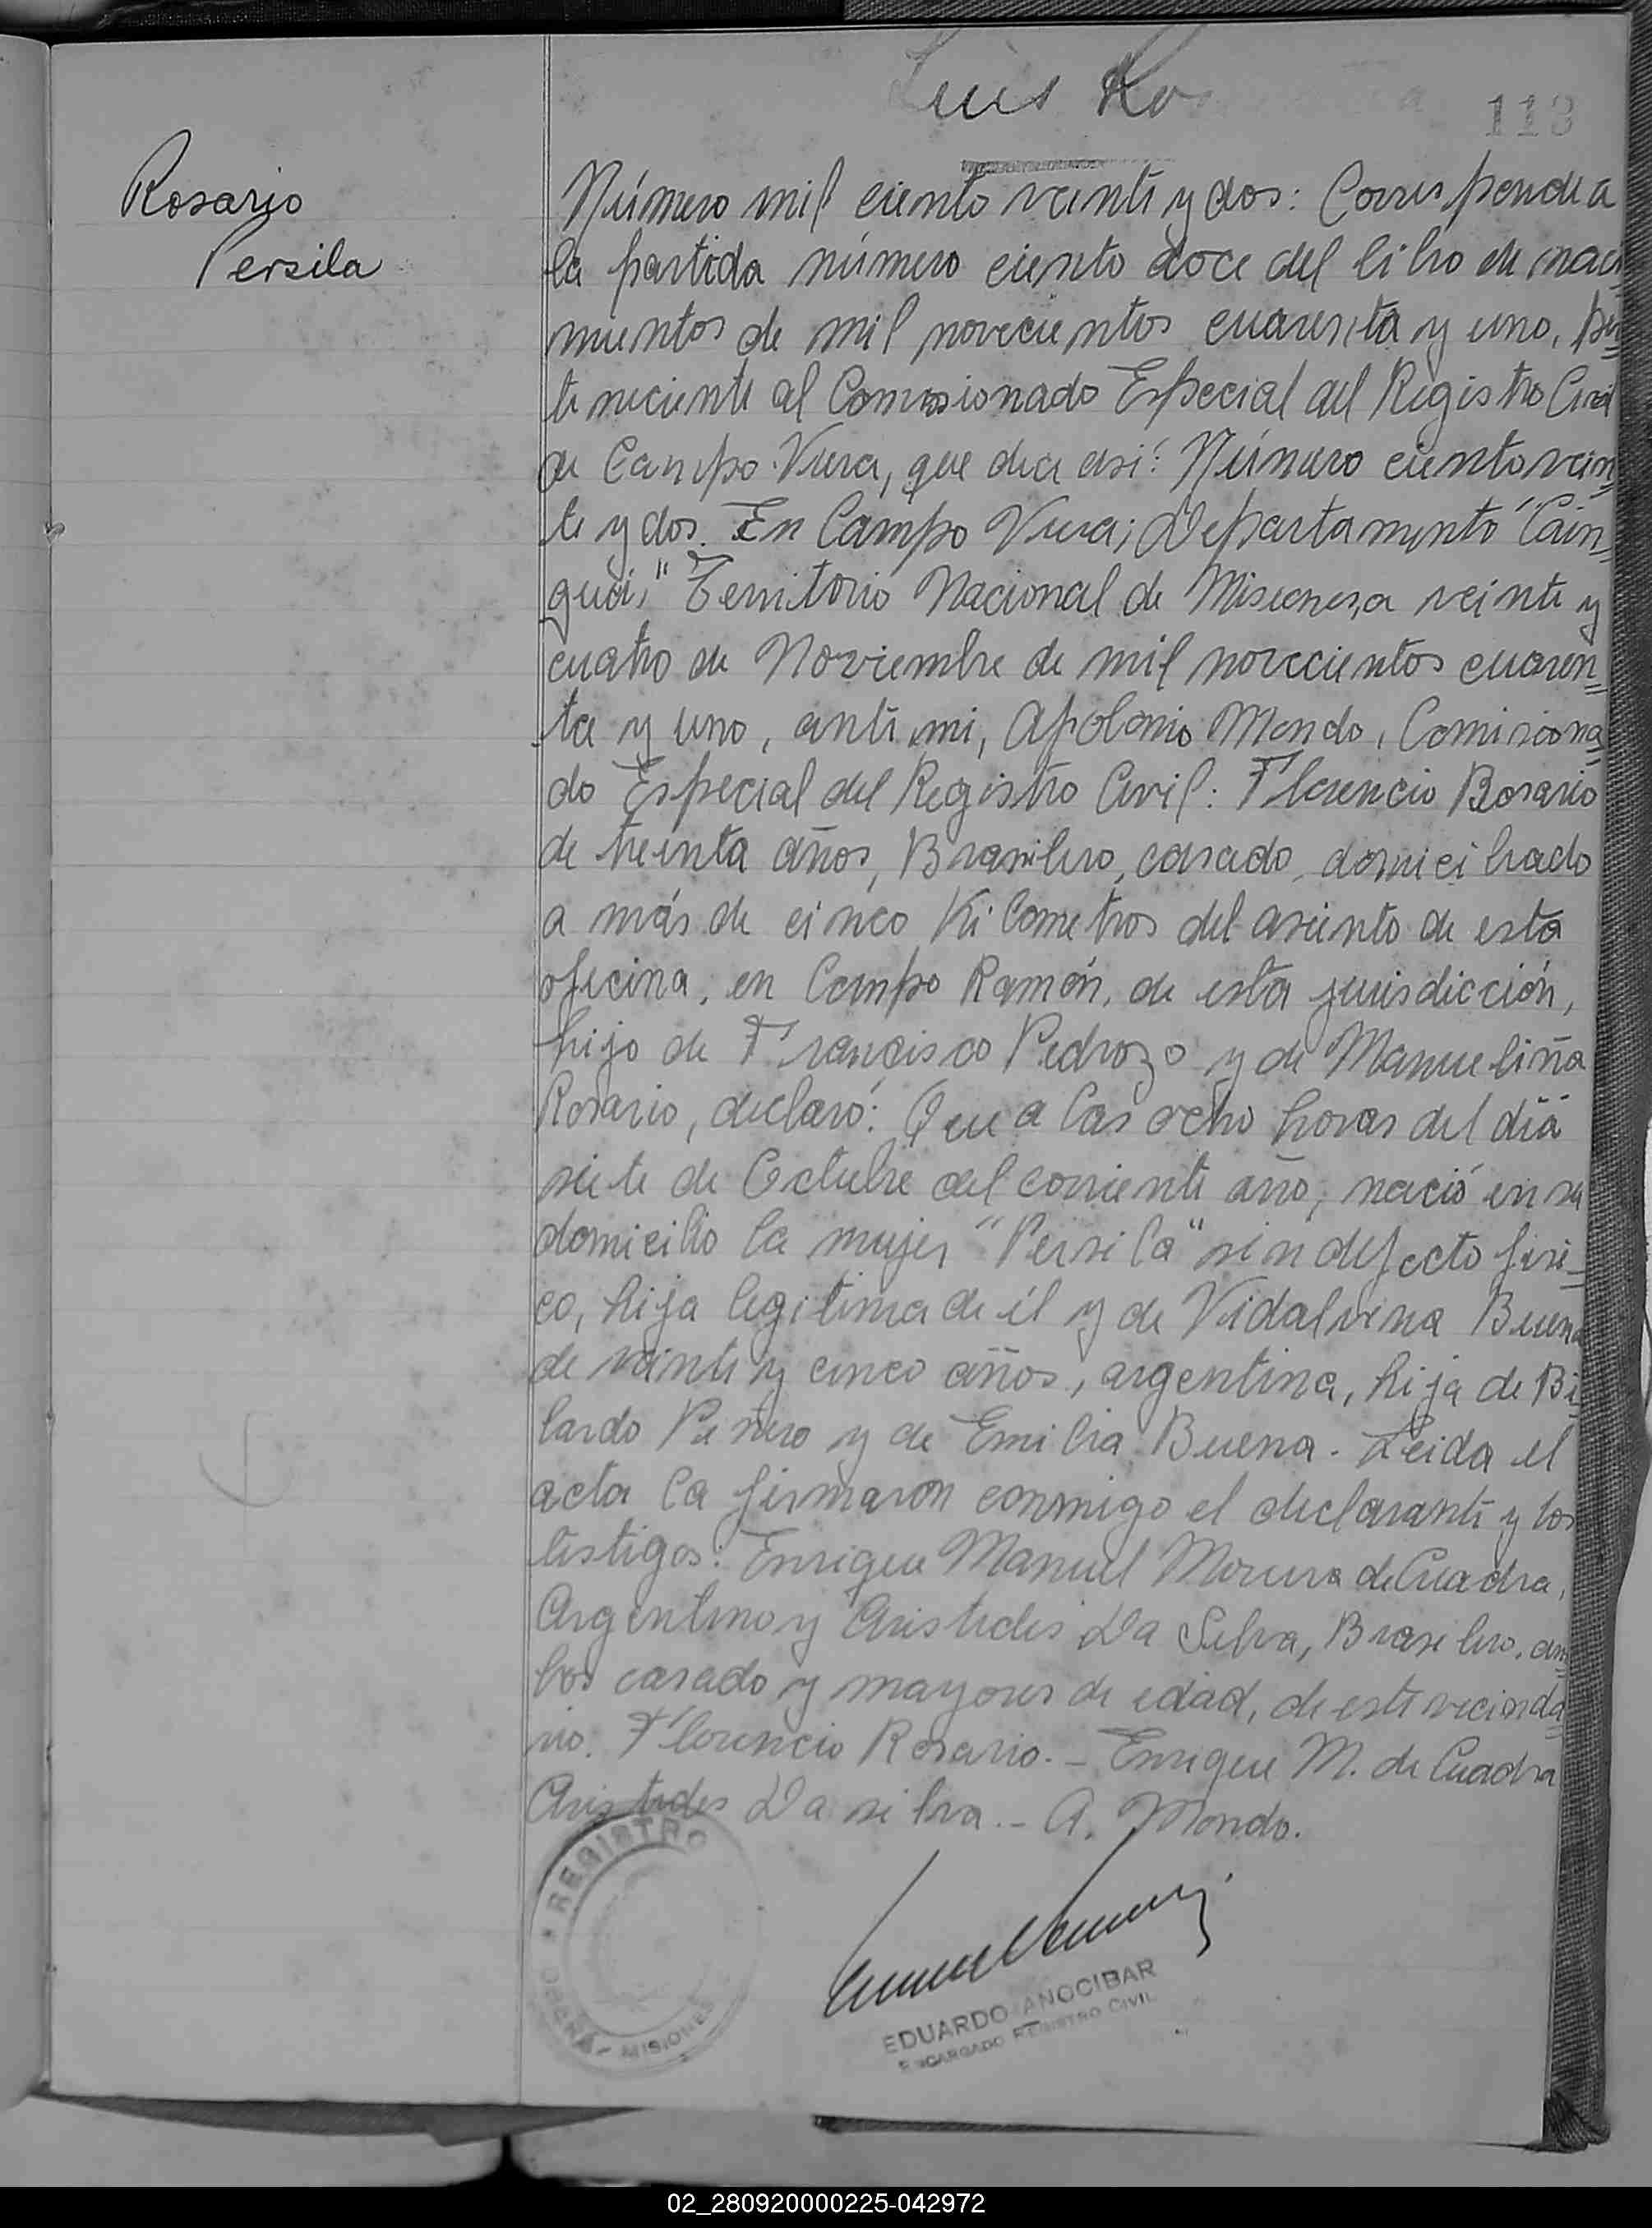 Luis Ros
113
Rosario
Persila
Número mil ciento veinte y dos: Corresponde a
la partida número ciento doce del libro de naci
mientos de mil novecientos cuarenta y uno, per=
teneciente al Comisionado Especial del Registro Civil
de Campo Viera, que dice asi: Número ciento vein=
te y dos. En Campo Viera; Departamento "Cain=
guái," Territorio Nacional de Misiones, a veinte y
cuatro de Noviembre de mil novecientos cuaren=
ta y uno, ante mi, Apolonio Mondo, Comisiona=
do Especial del Registro Civil: Florencio Rosario
de treinta años, Brasilero, casado, domiciliado
a más de cinco Kilometros del asiento de esta
oficina, en Campo Ramón, de esta jurisdicción,
hijo de Francisco Pedrozo y de Manueliña
Rosario, declaró: Que a las ocho horas del día
siete de Octubre del corriente año, nació en su
domicilio la mujer "Persila" sin defecto fisi=
co, hija legitima de él y de Vidalvina Buena
de veinte y cinco años, argentina, hija de Bi=
lardo y de Emilia Buena. Leida el
acta la firmaron conmigo el declarante y los
testigos: Enrique Manuel Moreira de Cuadra,
Argentino y Aristides Da Selva, Brasilero, am=
bos casado y mayores de edad, de este vecinda=
rio. Florencio Rosario. - Enrique M. de Cuadra
Aristides Da silva. - A. Mondo.
REGISTRO
OBERÁ - MISIONES
EDUARDO ANOCIBAR
ENCARGADO REGISTRO CIVIL
02_280920000225-042972